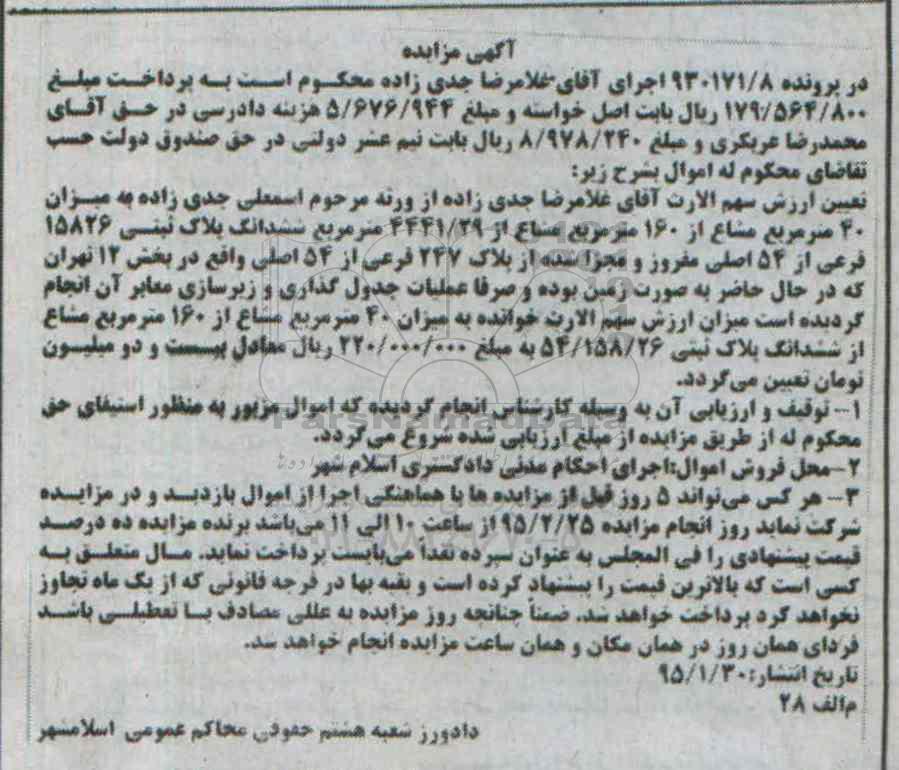 آگهی مزایده
در پرونده ۹۳۰۱۷۱/۸ اجرای آقای غلامرضا جدی زاده محکوم است به پرداخت مبلغ
۱۷۹/۵۶۴/۸۰۰ ریال بابت اصل خواسته و مبلغ ۵/۶۷۶/۹۴۴ هزینه دادرسی در حق آقای
محمدرضا عربکری و مبلغ ۸/۹۷۸/۲۴۰ ریال بابت نیم عشر دولتی در حق صندوق دولت حسب
تقاضای محکوم له اموال بشرح زیر:
تعیین ارزش سهم الارث آقای غلامرضا جدی زاده از ورثه مرحوم اسمعلی جدی زاده به میزان
۴۰ مترمربع مشاع از ۱۶۰ مترمربع مشاع از ۴۴۴۱/۲۹ مترمربع ششدانگ پلاک ثبتی ۱۵۸۲۶
فرعی از ۵۴ اصلی مفروز و مجزا شده از پلاک ۲۴۷ فرعی از ۵۴ اصلی واقع در بخش ۱۲ تهران
که در حال حاضر به صورت زمین بوده و صرفا عملیات جدول گذاری و زیرسازی معابر آن انجام
گردیده است میزان ارزش سهم الارث خوانده به میزان ۴۰ مترمربع مشاع از ۱۶۰ مترمربع مشاع
از ششدانگ پلاک ثبتی ۵۴/۱۵۸/۲۶ به مبلغ ۲۲۰/۰۰۰/۰۰۰ ریال معادل بیست و دو میلیون
تومان تعیین می‌گردد.
۱- توقیف و ارزیابی آن به وسیله کارشناس انجام گردیده که اموال مزبور به منظور استیفای حق
محکوم له از طریق مزایده از مبلغ ارزیابی شده شروع می‌گردد.
۲- محل فروش اموال: اجرای احکام مدنی دادگستری اسلام شهر
۳- هر کس می‌تواند ۵ روز قبل از مزایده ها با هماهنگی اجرا از اموال بازدید و در مزایده
شرکت نماید روز انجام مزایده ۹۵/۲/۲۵ از ساعت ۱۰ الی ۱۱ می‌باشد برنده مزایده ده درصد
قیمت پیشنهادی را فی المجلس به عنوان سپرده نقدا می‌بایست پرداخت نماید. مال متعلق به
کسی است که بالاترین قیمت را پیشنهاد کرده است و بقیه بها در فرجه قانونی که از یک ماه تجاوز
نخواهد کرد پرداخت خواهد شد. ضمناً چنانچه روز مزایده به عللی مصادف با تعطیلی باشد
فردای همان روز در همان مکان و همان ساعت مزایده انجام خواهد شد.
تاریخ انتشار: ۹۵/۱/۳۰
م الف ۲۸
دادورز شعبه هشتم حقوقی محاکم عمومی اسلامشهر
ParsNamadData